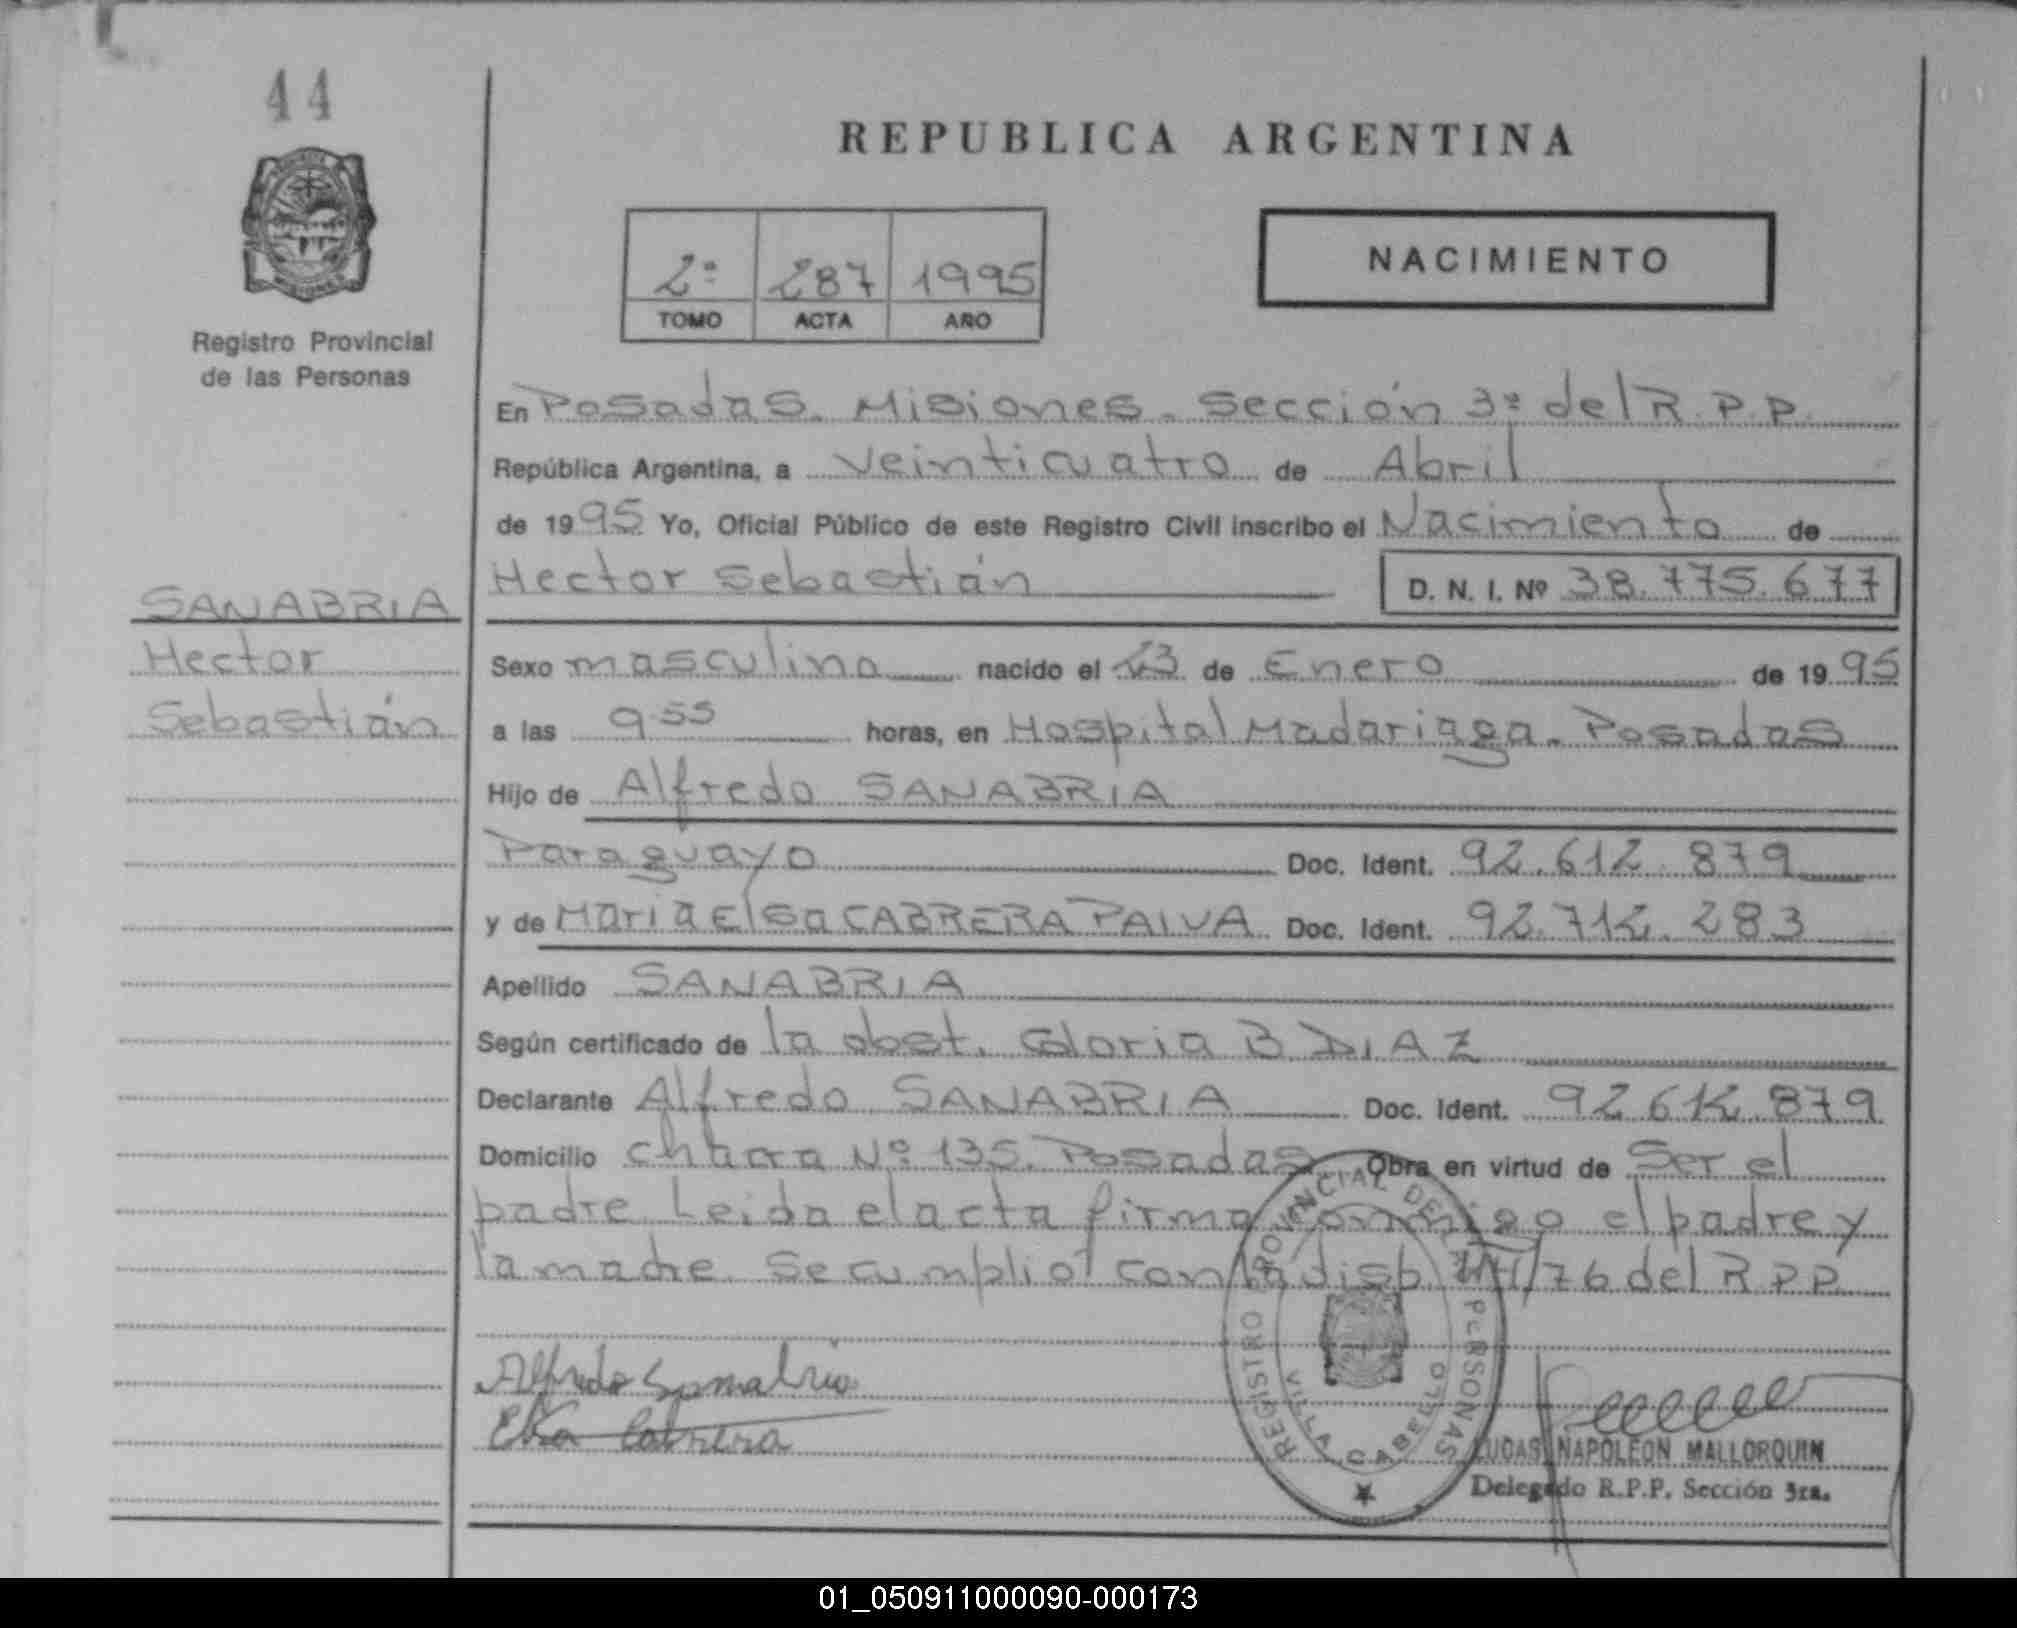 44
REPUBLICA ARGENTINA
2º 287 1995
TOMO ACTA AÑO
NACIMIENTO
MISIONES
Registro Provincial
de las Personas
En Posadas. Misiones. Sección 3ª del R.P.P.
República Argentina, a Veinticuatro de Abril
de 1995 Yo, Oficial Público de este Registro Civil inscribo el Nacimiento de
Hector Sebastián D. N. I. Nº 38.775.677
SANABRIA
Hector
Sebastián
Sexo masculino nacido el 23 de Enero de 1995
a las 9.55 horas, en Hospital Madariaga. Posadas
Hijo de Alfredo SANABRIA
Paraguayo Doc. Ident. 92.612.879
y de Maria Elsa CABRERA PAIVA Doc. Ident. 92.712.283
Apellido SANABRIA
Según certificado de la obst. Gloria B DIAZ
Declarante Alfredo SANABRIA Doc. Ident. 92.612.879
Domicilio chacra Nº 135. Posadas Obra en virtud de Ser el
padre. Leida el acta firma conmigo el padre y
la madre. Se cumplió con la disp /76 del R.P.P.
Alfredo Sanabria
Elsa Cabrera
REGISTRO PROVINCIAL DE PERSONAS
VILLA CABELLO
LUCAS NAPOLEON MALLORQUIN
Delegado R.P.P. Sección 3ra.
01_050911000090-000173